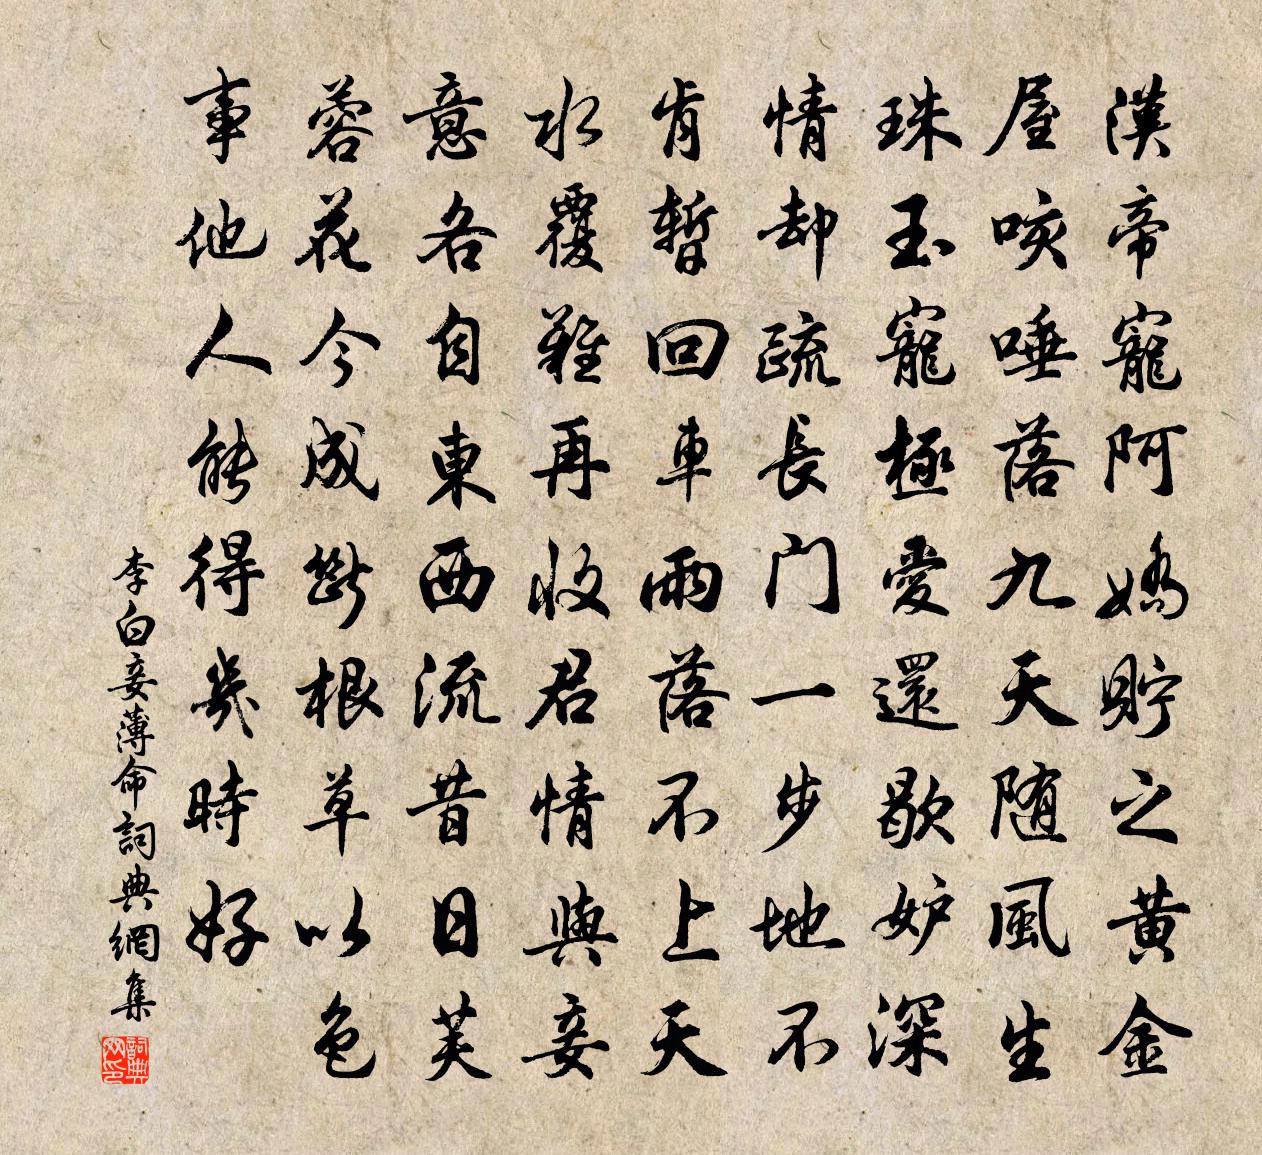 漢帝寵阿嬌貯之黄金
屋咳唾落九天随風生
珠玉寵極愛還歇妒深
情却疏長門一步地不
肯暫回車雨落不上天
水覆難再收君情與妾
意各自東西流昔日芙
蓉花今成斷根草以色
事他人能得幾時好
李白妾薄命詞典網集
詞典网印